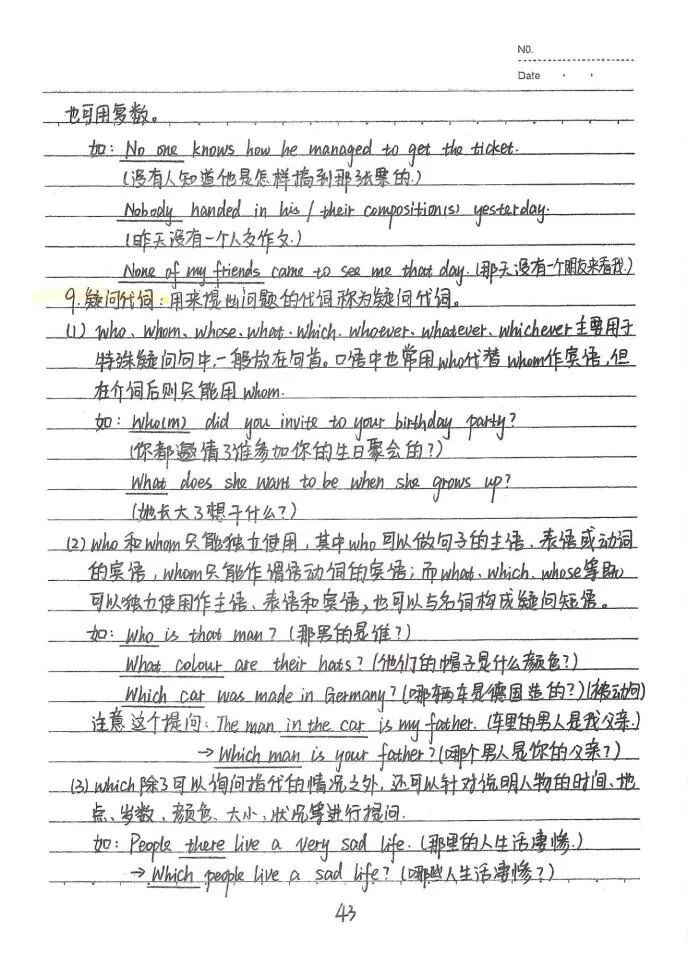 NO.
Date
也可用复数。
如: No one knows how he managed to get the ticket.
(没有人知道他是怎样搞到那张票的.)
Nobody handed in his / their composition(s) yesterday.
(昨天没有一个人交作文.)
None of my friends came to see me that day. (那天没有一个朋友来看我.)
9. 疑问代词: 用来提出问题的代词称为疑问代词。
(1) who、whom、whose、what、which、whoever、whatever、whichever 主要用于
特殊疑问句中,一般放在句首。口语中也常用who代替 whom作宾语,但
在介词后则只能用 whom.
如: Who(m) did you invite to your birthday party?
(你都邀请了谁参加你的生日聚会的?)
What does she want to be when she grows up?
(她长大了想干什么?)
(2) who 和whom 只能独立使用, 其中who 可以做句子的主语、表语或动词
的宾语, whom只能作谓语动词的宾语; 而what、which、whose 等既
可以独立使用作主语、表语和宾语, 也可以与名词构成疑问短语。
如: Who is that man? (那男的是谁?)
What colour are their hats? (他们的帽子是什么颜色?)
Which car was made in Germany? (哪辆车是德国造的?)(被动句)
注意这个提问: The man in the car is my father. (车里的男人是我父亲.)
→ Which man is your father? (哪个男人是你的父亲?)
(3) which 除了可以询问指代的情况之外, 还可以针对说明人物的时间、地
点、岁数、颜色、大小、状况等进行提问.
如: People there live a very sad life. (那里的人生活凄惨.)
→ Which people live a sad life? (哪些人生活凄惨?)
43